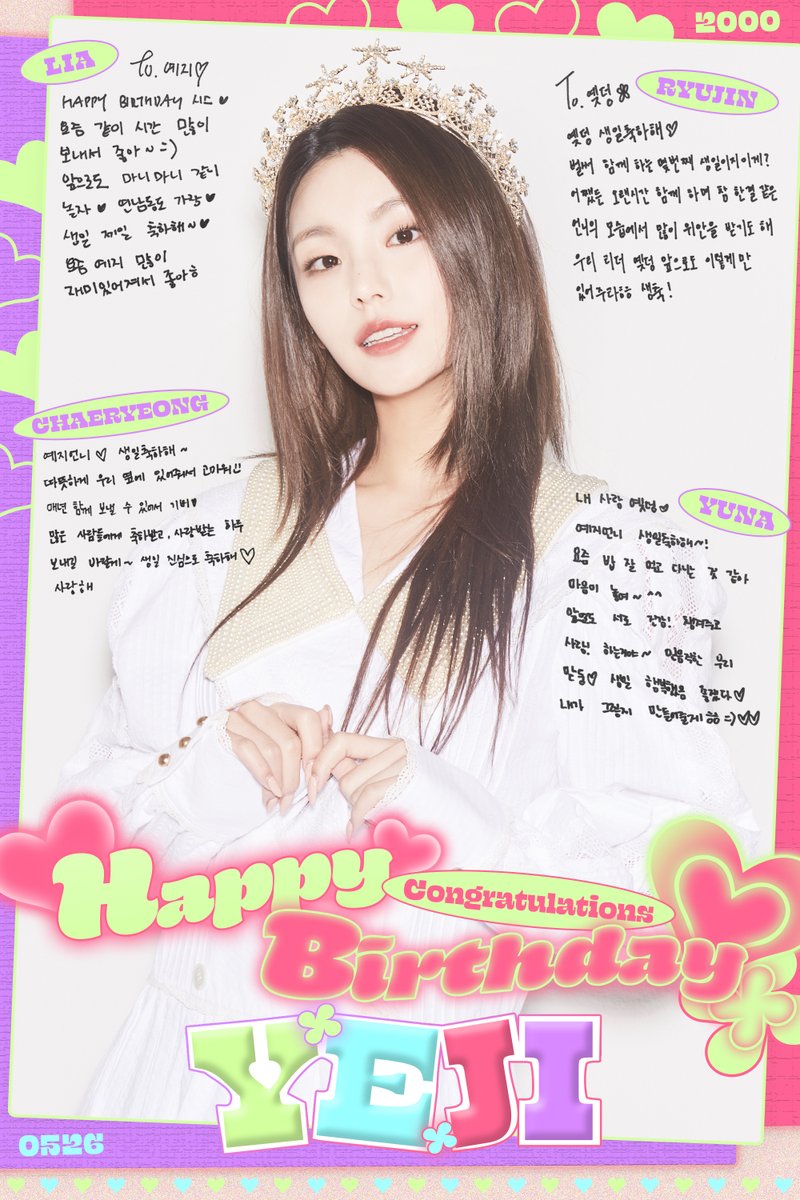 2000
LIA
To. 예지♡
HAPPY BIRTHDAY 시드♥
요즘 같이 시간 많이
보내서 좋아~=)
앞으로도 마니마니 같이
놀자♥ 연남동도 가쟈♥
생일 제일 축하해~♥
요즘 예지 많이
재미있어져서 좋아ㅎ
RYUJIN
To. 옛덩
옛덩 생일축하해♡
벌써 함께 하는 몇번째 생일이지이게?
어쨌든 오랜시간 함께 하며 참 한결 같은
언니의 모습에서 많이 위안을 받기도 해
우리 리더 옛덩 앞으로도 이렇게만
있어주라으응 생툑!
CHAERYEONG
예지언니♡ 생일축하해~
따뜻하게 우리 옆에 있어줘서 고마워
매년 함께 보낼 수 있어서 기뻐
많은 사람들에게 축하받고, 사랑받는 하루
보내길 바랄게~ 생일 진심으로 축하해♡
사랑해
YUNA
내 사랑 옛덩♡
예지언니 생일축하해~!
요즘 밥 잘 먹고 다니는 것 같아
마음이 놓여~ ^^
앞으로도 서로 건강! 챙겨주고
사랑! 하는거야~ 믿음직한 우리
만둥♡ 생일 행복했음 좋겠다♡
내가 그렇지 만들어줄게 ㅎㅎ =)♡♡
Happy
Congratulations
Birthday
YEJI
0526